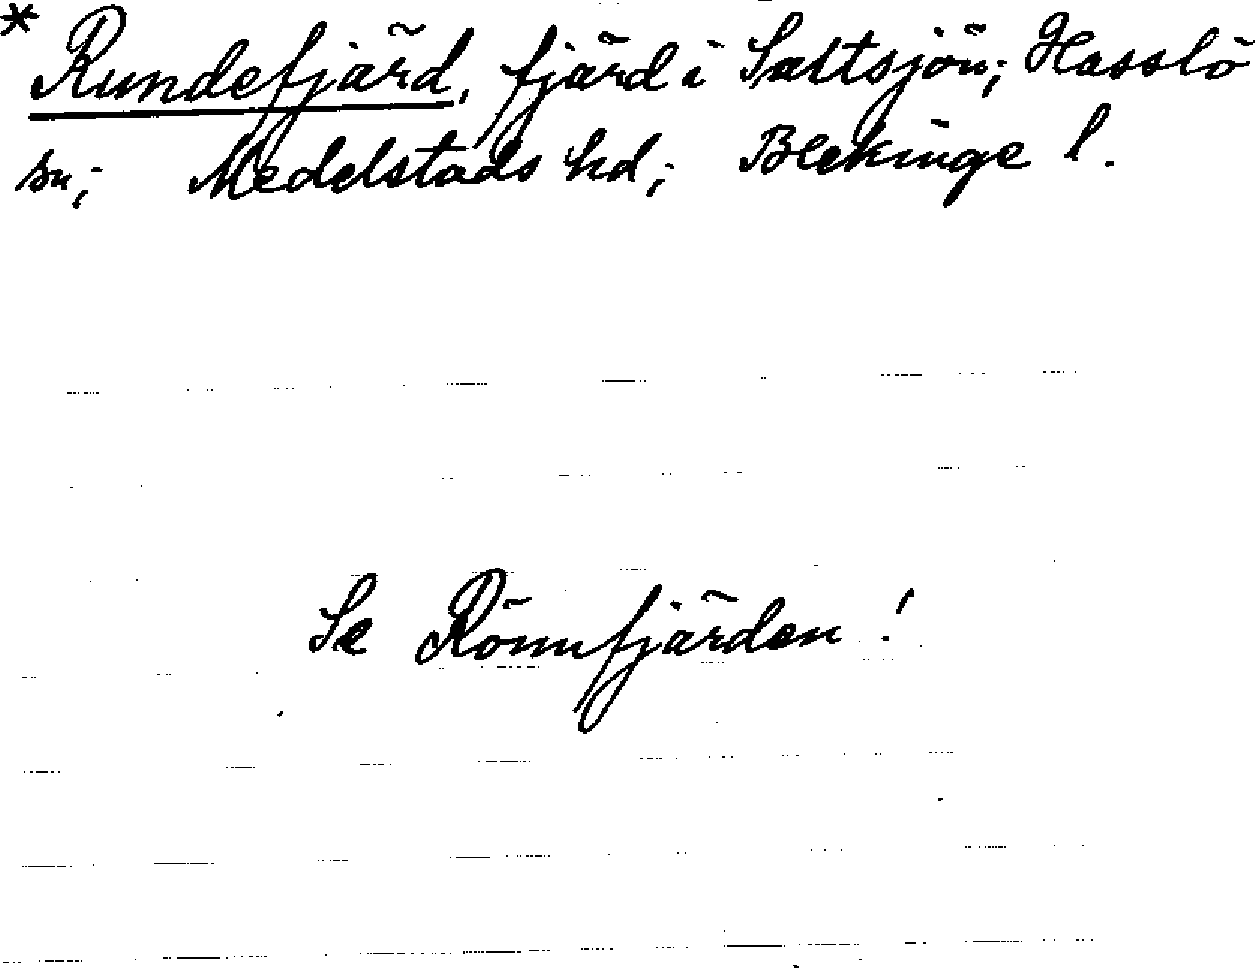 * Rundefjärd, fjärd i Saltsjön; Hasslö
sn; Medelstads hd; Blekinge l.
Se Rönnfjärden!